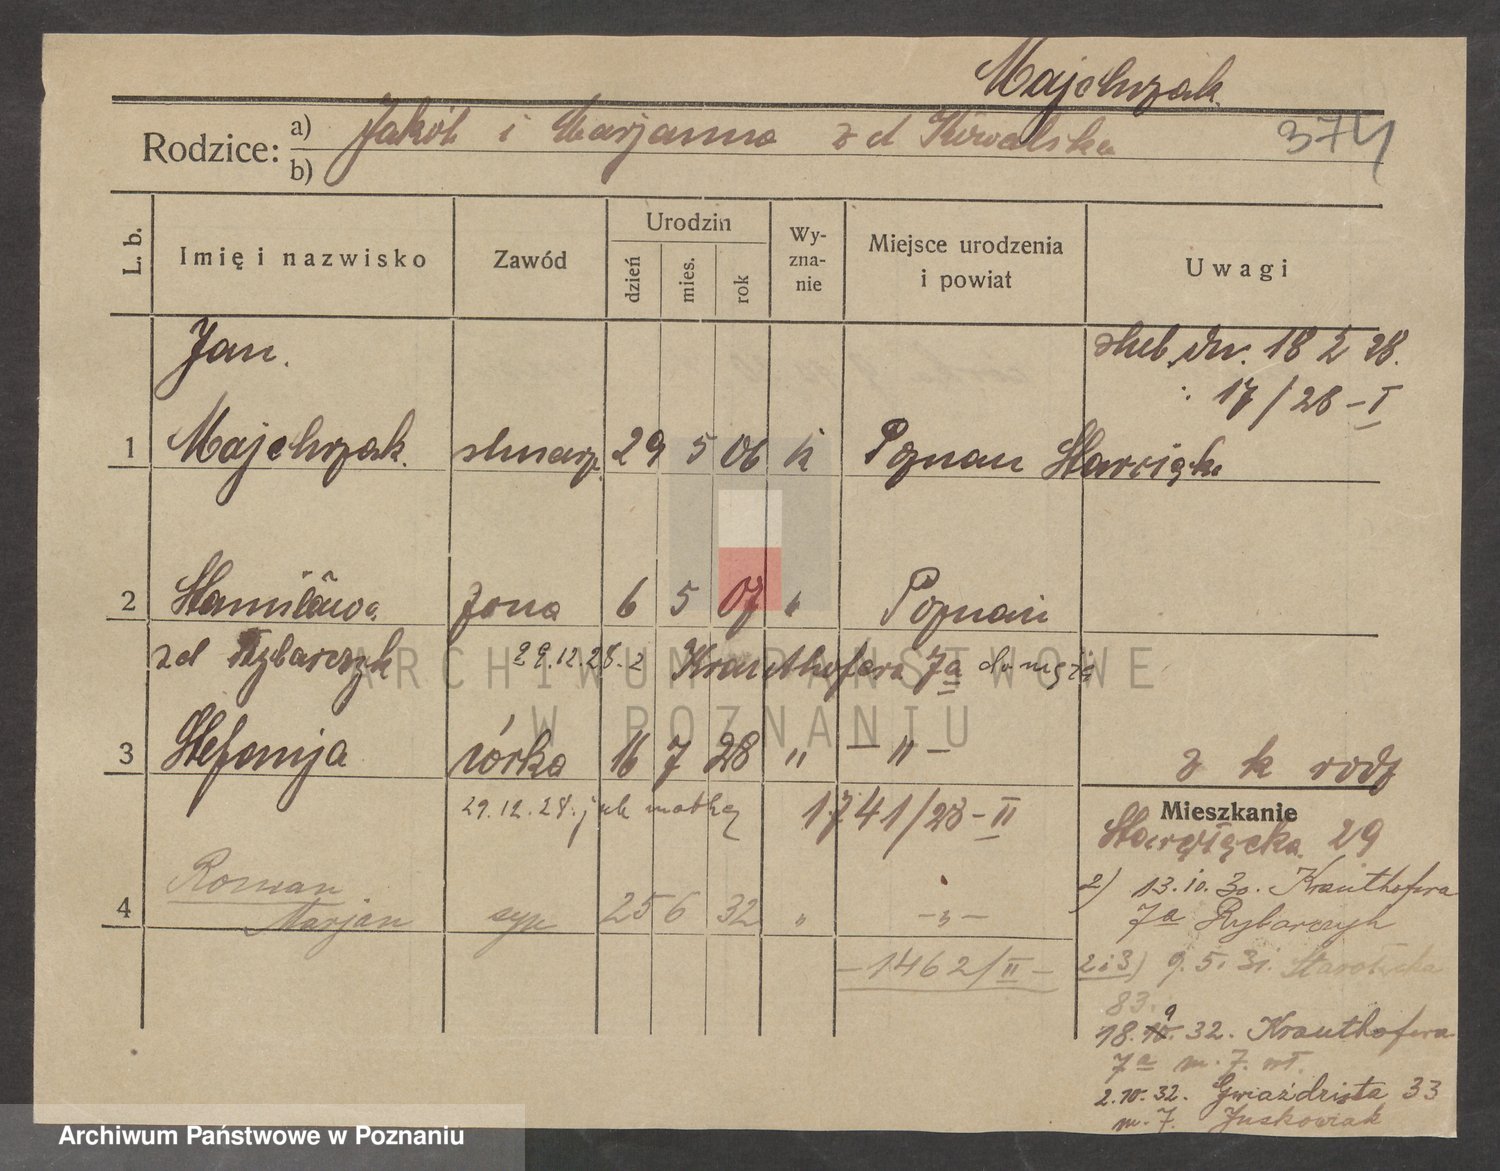 Majchrzak
Rodzice: a) Jakób i Marjanna z d Kowalska 374
b)
L. b. Imię i nazwisko Zawód Urodzin dzień mies. rok Wy-zna-nie Miejsce urodzenia i powiat Uwagi
Jan. ślub dn. 18 2 28.
17/28-I
1 Majchrzak. ślusarz. 29 5 06 k Poznań Starołęka
2 Stanisława żona 6 5 07 " Poznań
zd Rybarczyk 29.12.28. z Krauthofera 7a do męża
3 Stefanja córka 16 7 28 " - " - z k rodz
29.12.28. jak matka 1741/28-II Mieszkanie
Starołęcka 29
Roman 2) 13.10.30. Krauthofera
4 Marjan syn 25 6 32 " - " - 7a Rybarczyk
-1462/II- 2i3) 9.5.31. Starołęcka
83.
18.10. 9 32. Krauthofera
7a m. 7. wł.
2.10.32. Gwiaździsta 33
m. 7. Juskowiak
ARCHIWUM PAŃSTWOWE
W POZNANIU
Archiwum Państwowe w Poznaniu